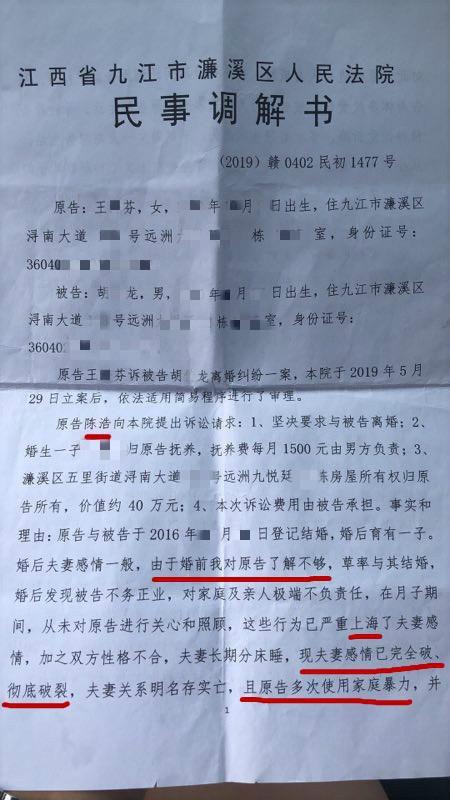 江西省九江市濂溪区人民法院
民事调解书
（2019）赣 0402 民初 1477 号
原告：王 芬，女， 年 月 日出生，住九江市濂溪区
浔南大道 号远洲 栋 室，身份证号：
36040
被告：胡 龙，男， 年 月 日出生，住九江市濂溪区
浔南大道 号远洲 栋 室，身份证号：
36040
原告王 芬诉被告胡 龙离婚纠纷一案，本院于 2019 年 5 月
29 日立案后，依法适用简易程序进行了审理。
原告陈浩向本院提出诉讼请求：1、坚决要求与被告离婚；2、
婚生一子 归原告抚养，抚养费每月 1500 元由男方负责；3、
濂溪区五里街道浔南大道 号远洲九悦廷 栋房屋所有权归原
告所有，价值约 40 万元；4、本次诉讼费用由被告承担。事实和
理由：原告与被告于 2016 年 月 日登记结婚，婚后育有一子。
婚后夫妻感情一般，由于婚前我对原告了解不够，草率与其结婚，
婚后发现被告不务正业，对家庭及亲人极端不负责任，在月子期
间，从未对原告进行关心和照顾，这些行为已严重上海了夫妻感
情，加之双方性格不合，夫妻长期分床睡，现夫妻感情已完全破、
彻底破裂，夫妻关系明名存实亡，且原告多次使用家庭暴力，并
1